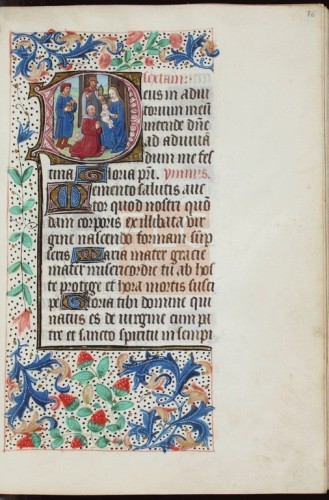 86
Sextam:
Deus in adiu
torium meū
intende dn̄e
ad adiuuā
dum me fes
tina Gloria pr̄i. ymnus.
Memento salutis auc
tor quod nostri quō
dam corporis ex illibata vir
gine nascendo formam sūp
seris Maria mater gracie
mater misericordie tu ab hos
te protege et hora mortis susci
pe Gloria tibi domine qui
natus es de uirgine cum pa
tre et sancto spiritu in sempi